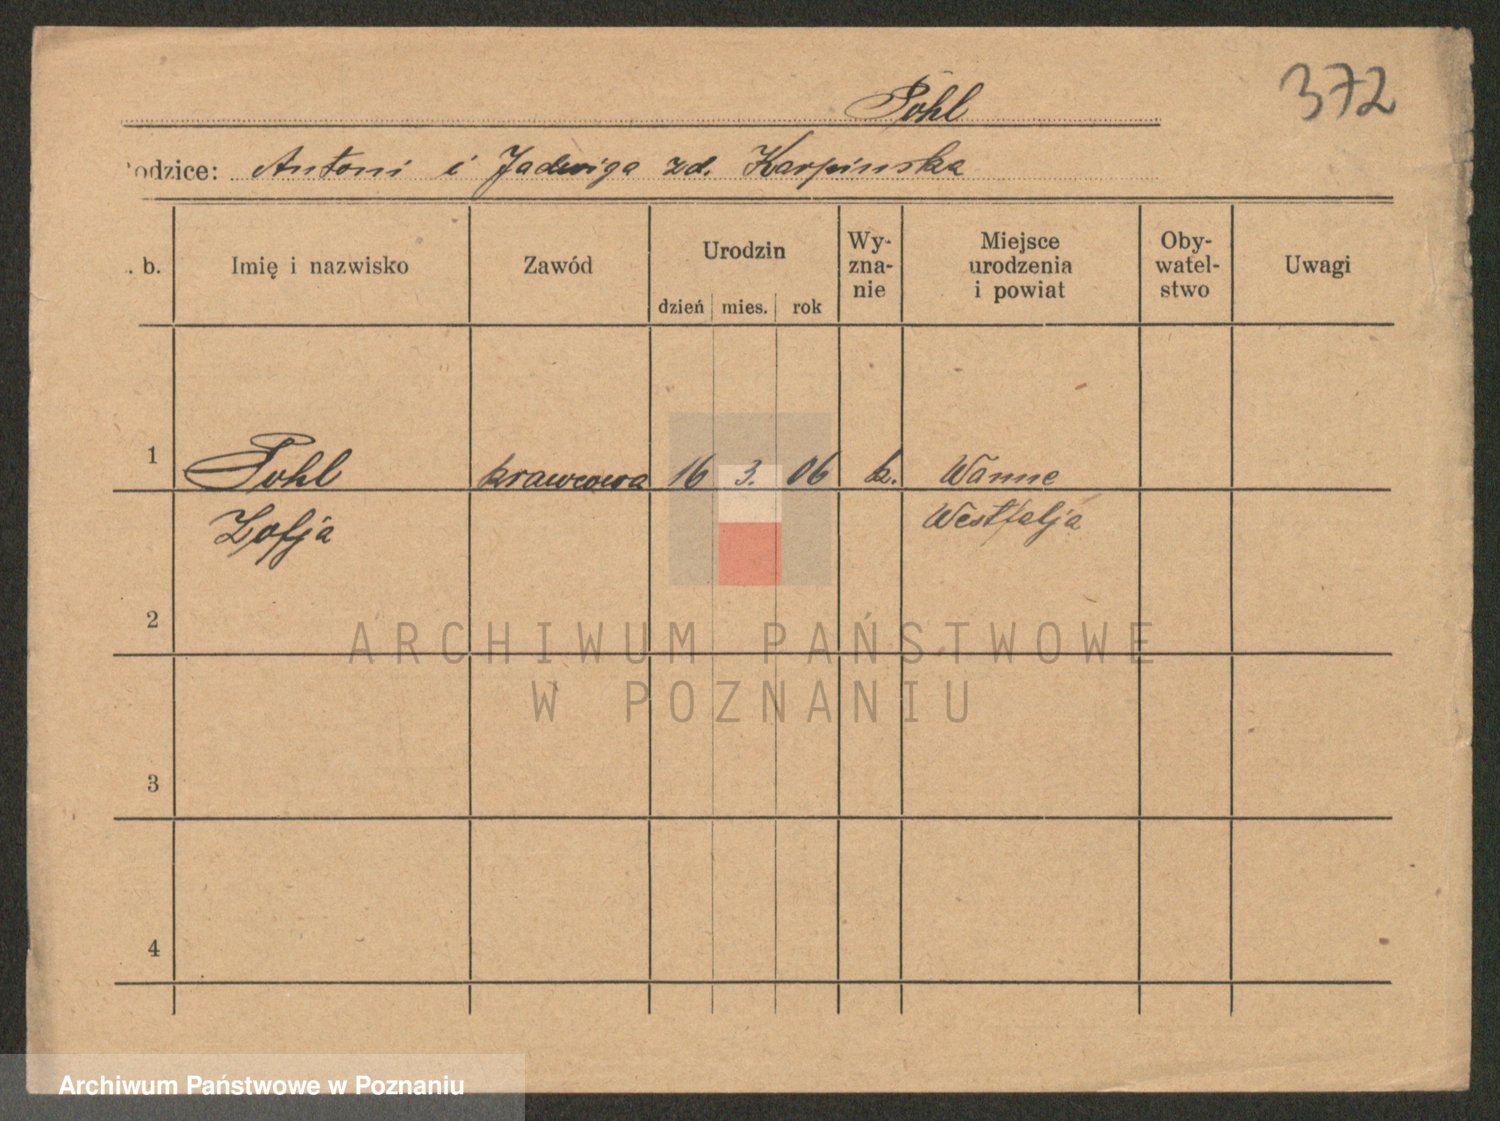 372
Pohl
odzice: Antoni i Jadwiga zd. Karpinska
. b. Imię i nazwisko Zawód Urodzin dzień mies. rok Wy-zna-nie Miejsce urodzenia i powiat Oby-watel-stwo Uwagi
1 Pohl krawcowa 16 3. 06 k. Wanne
Zofja Westfalja
2
ARCHIWUM PAŃSTWOWE
W POZNANIU
3
4
Archiwum Państwowe w Poznaniu